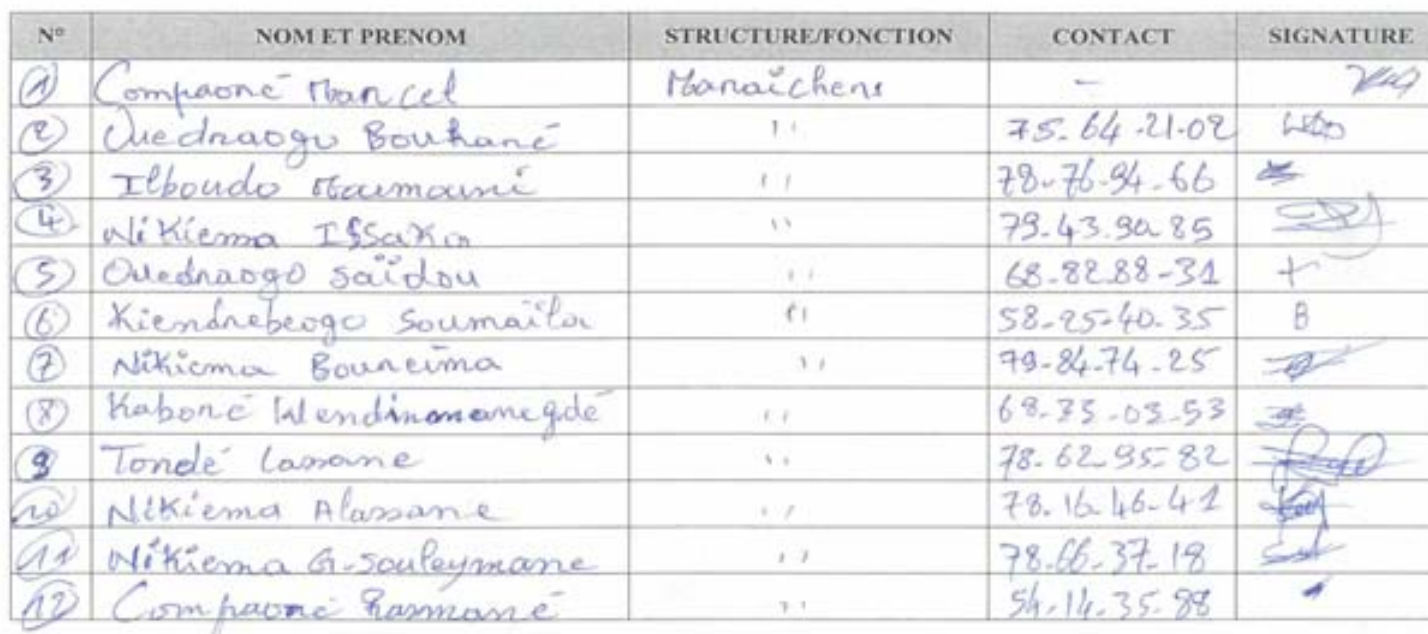 N° NOM ET PRENOM STRUCTURE/FONCTION CONTACT SIGNATURE
1 Compaoré Marcel Maraîchers -
2 Ouedraogo Boukaré " 75-64-21-02
3 Ilboudo Maimouni " 78-76-94-66
4 Nikiema Issaka " 79-43-90-85
5 Ouedraogo Saïdou " 68-82-88-31 +
6 Kiendrebeogo Soumaïla " 58-25-40-35 B
7 Nikiema Boureima " 79-84-74-25
8 Kaboré Wendinmanegdé " 68-75-03-53
9 Tondé Lassane " 78-62-95-82
10 Nikiema Alassane " 78-16-46-41
11 Nikiema G-Souleymane " 78-66-37-18
12 Compaoré Rasmané " 54-14-35-88